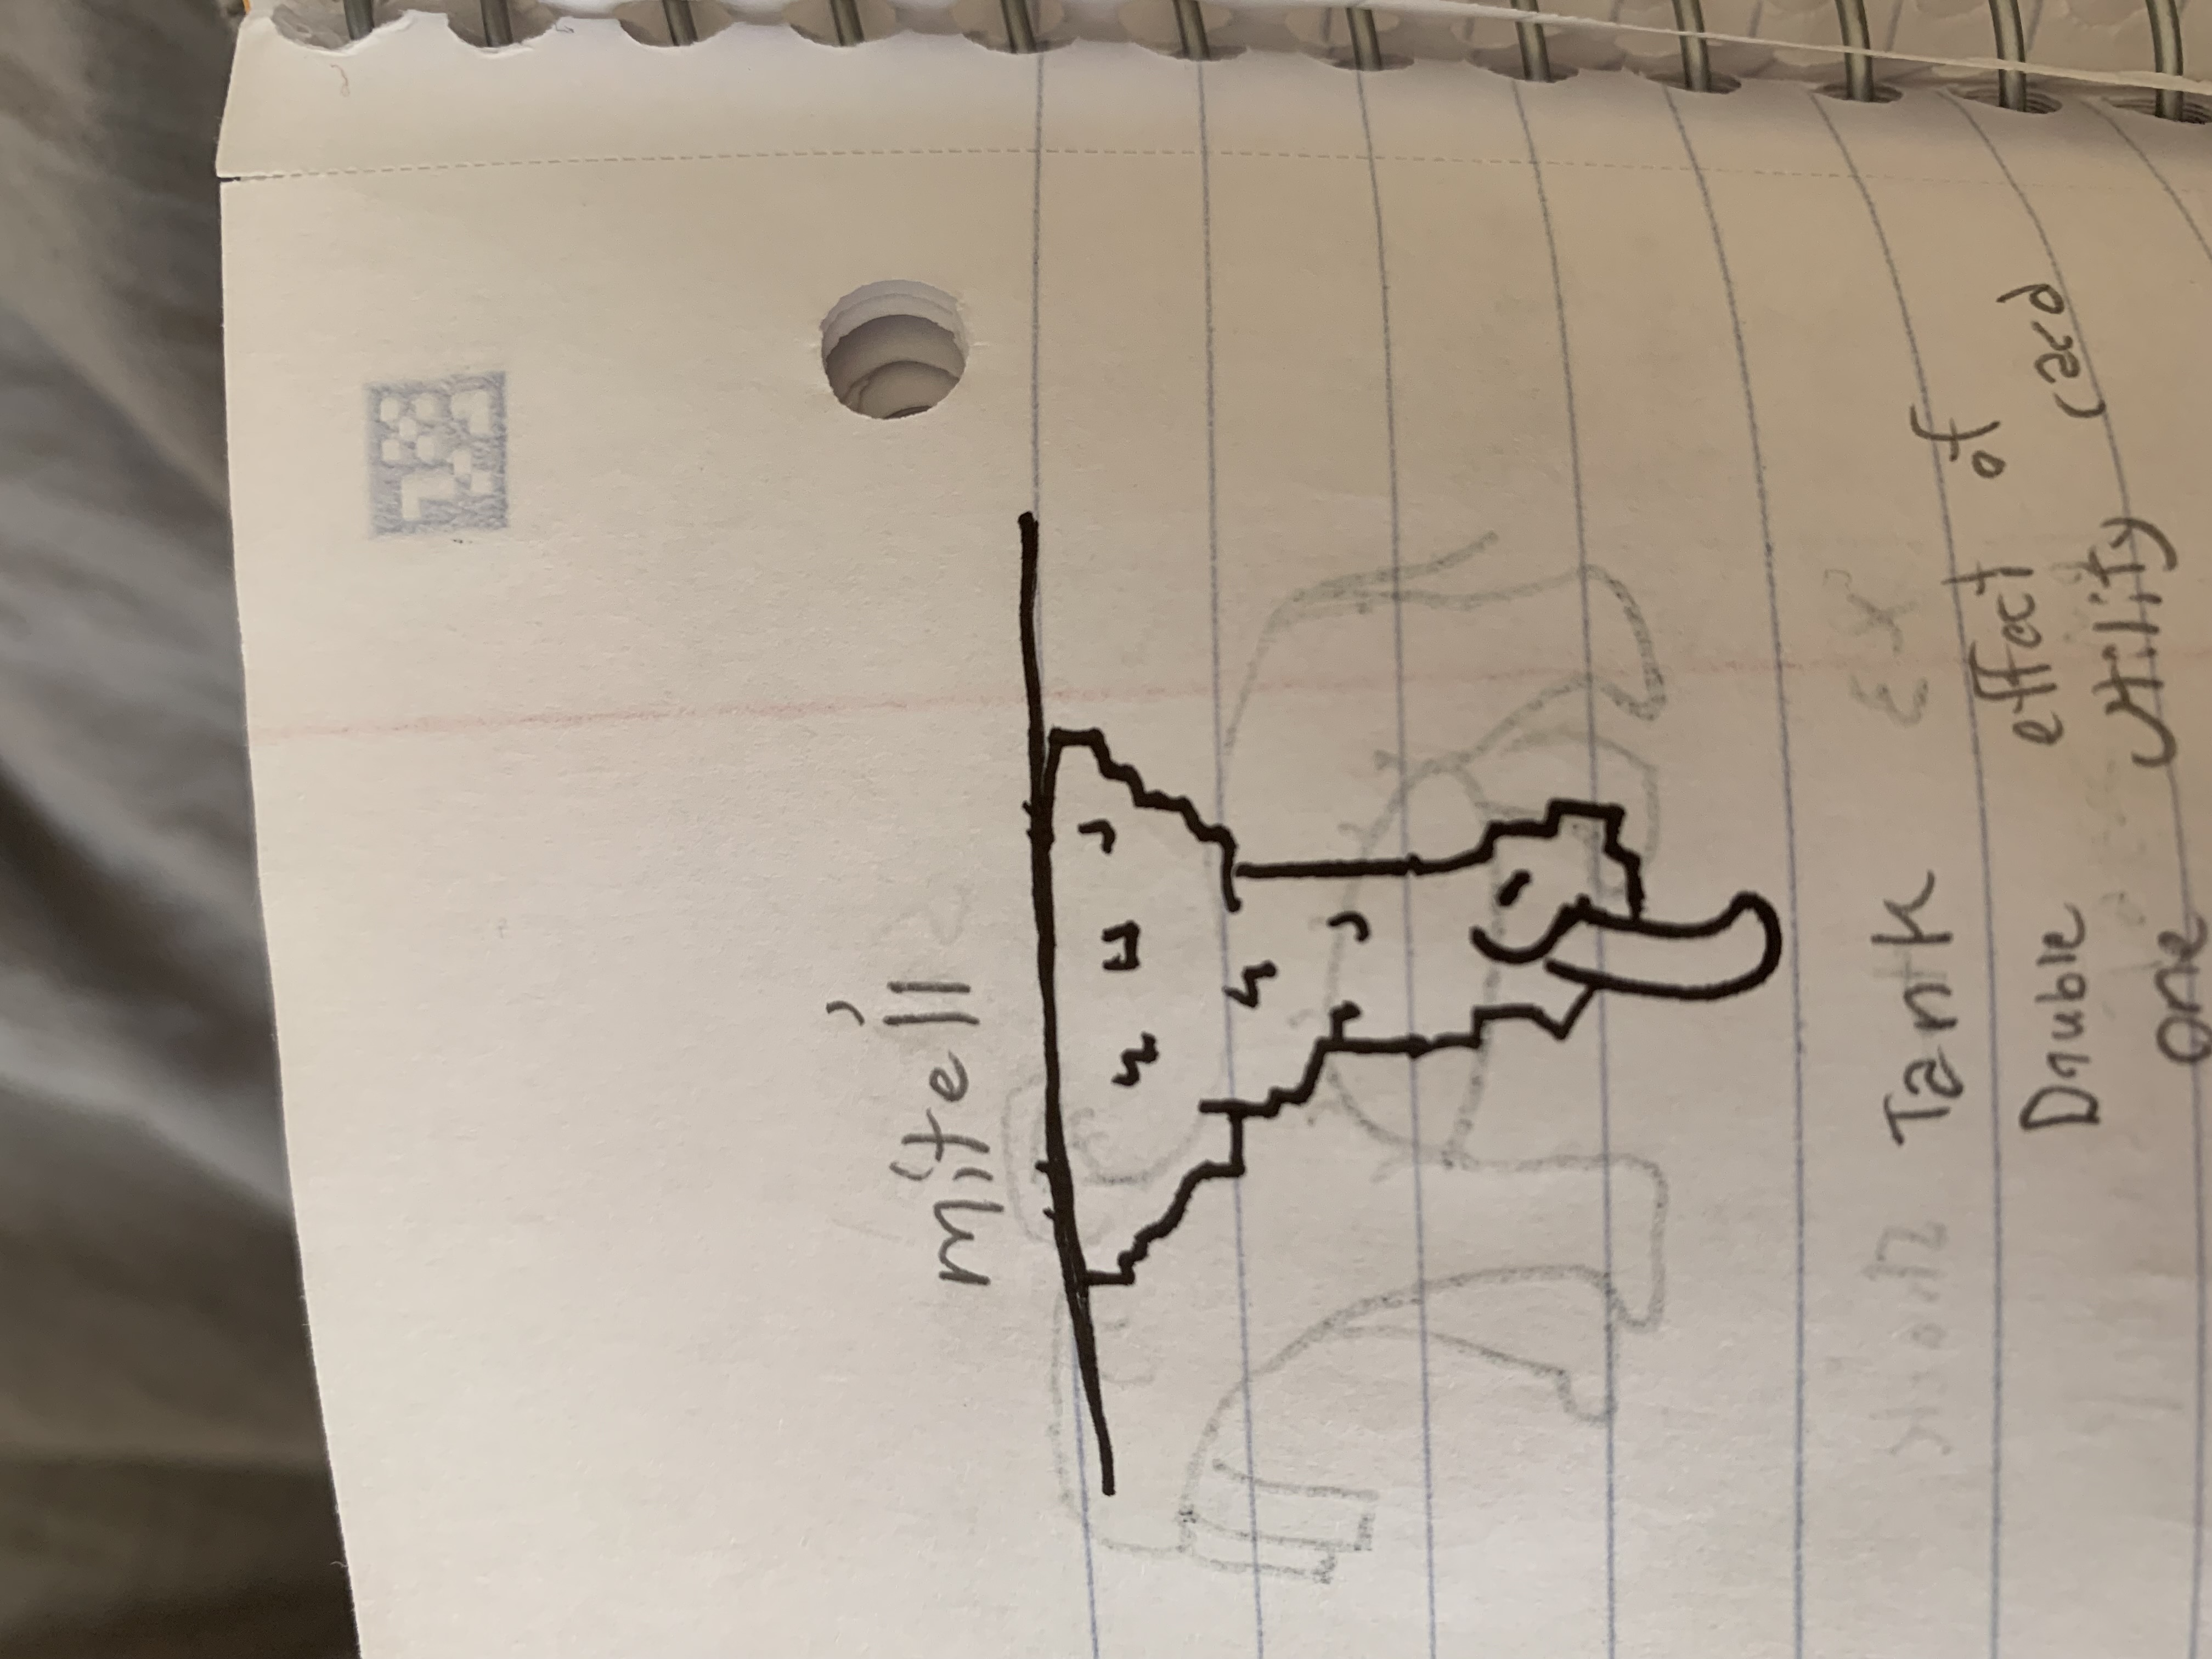 mitell
Tank
Double effect of
one utility card